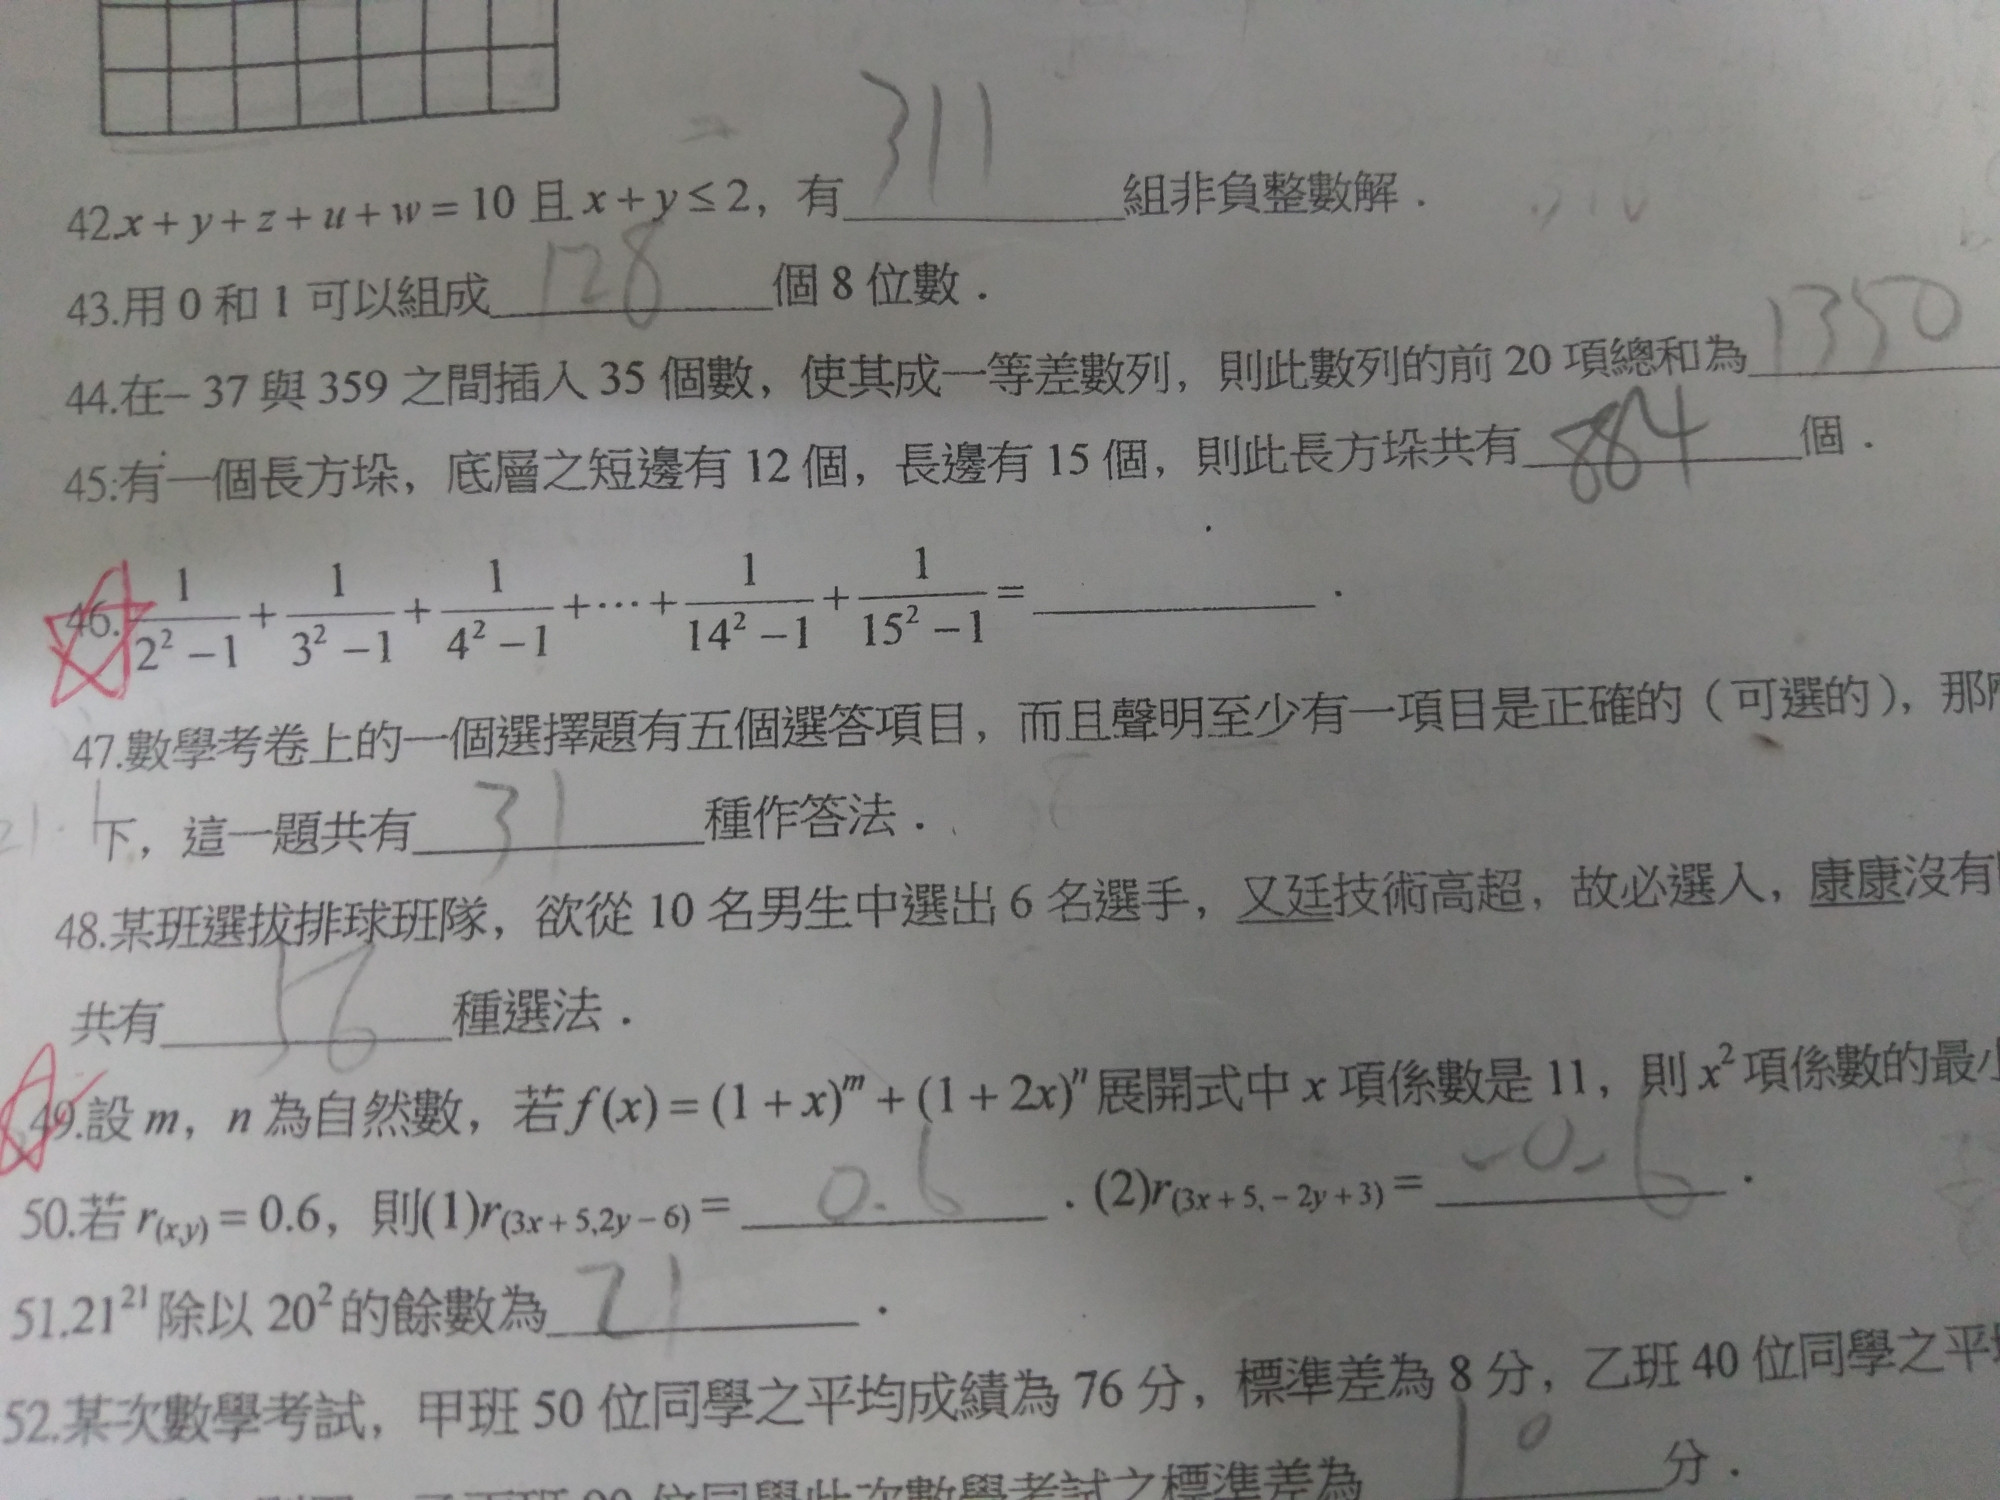 42.x + y + z + u + w = 10 且 x + y ≤ 2，有 311 組非負整數解．
43.用 0 和 1 可以組成 128 個 8 位數．
44.在– 37 與 359 之間插入 35 個數，使其成一等差數列，則此數列的前 20 項總和為 1350
45.有一個長方垛，底層之短邊有 12 個，長邊有 15 個，則此長方垛共有 884 個．
46. 1/(2² – 1) + 1/(3² – 1) + 1/(4² – 1) + ⋯ + 1/(14² – 1) + 1/(15² – 1) = ．
47.數學考卷上的一個選擇題有五個選答項目，而且聲明至少有一項目是正確的（可選的），那
下，這一題共有 31 種作答法．
48.某班選拔排球班隊，欲從 10 名男生中選出 6 名選手，又廷技術高超，故必選入，康康沒有
共有 56 種選法．
49.設 m，n 為自然數，若 f(x) = (1 + x)ᵐ + (1 + 2x)ⁿ 展開式中 x 項係數是 11，則 x² 項係數的最
50.若 r(x,y) = 0.6，則(1)r(3x + 5,2y – 6) = 0.6 ．(2)r(3x + 5, – 2y + 3) = -0.6 ．
51.21²¹ 除以 20² 的餘數為 21 ．
52.某次數學考試，甲班 50 位同學之平均成績為 76 分，標準差為 8 分，乙班 40 位同學之平
位同學此次數學考試之標準差為 10 分．